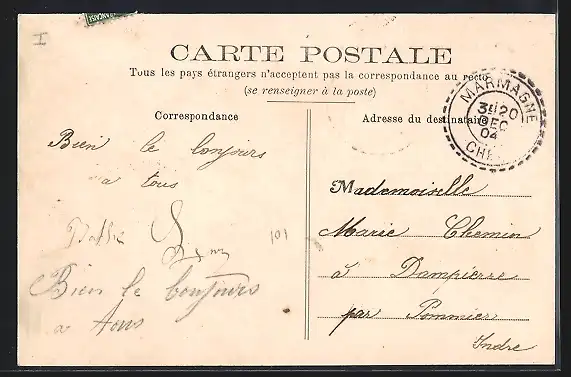 I
CARTE POSTALE
Tous les pays étrangers n'acceptent pas la correspondance au recto
(se renseigner à la poste)
MARMAGNE
3E 20
DEC
04
CHER
Correspondance
Bien le bonjours
a tous
101
Bien le bonjours
a tous
Adresse du destinataire
Mademoiselle
Marie Chemin
à Dampierre
par Pommier
Indre